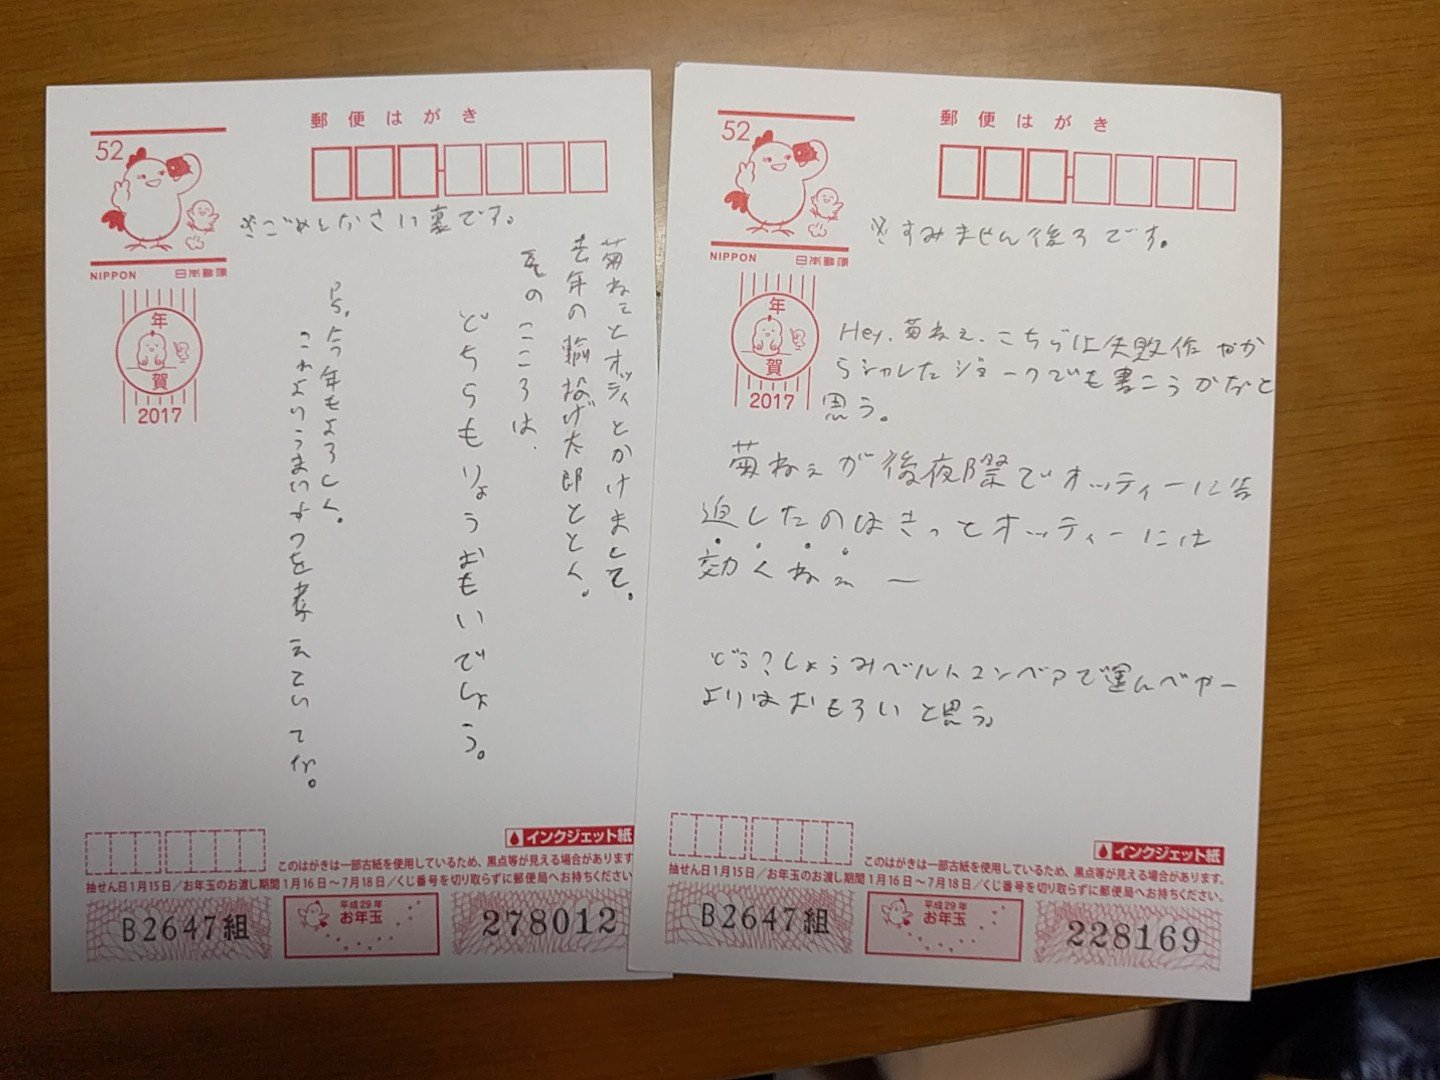 郵便はがき
52
NIPPON 日本郵便
年賀
2017
※ごめんなさい裏です。
菊ねえとオッティとかけまして。
去年の輪投げ太郎ととく。
そのこころは、
どちらもりょうおもいでしょう。
P.S. 今年もよろしく。
これよりうまいやつを考えていてな。
インクジェット紙
このはがきは一部古紙を使用しているため、黒点等が見える場合があります
抽せん日1月15日／お年玉のお渡し期間1月16日～7月18日／くじ番号を切り取らずに郵便局へお持ちください
B2647組
平成29年
お年玉
278012
郵便はがき
52
NIPPON 日本郵便
年賀
2017
※すみません後ろです。
Hey、菊ねぇ、こちらは失敗作やか
らシャレたジョークでも書こうかなと
思う。
菊ねぇが後夜際でオッティーに告
迫したのはきっとオッティーには
効くねぇー
どう？しょうみベルトコンベアで運んベヤー
よりはおもろいと思う。
インクジェット紙
このはがきは一部古紙を使用しているため、黒点等が見える場合があります。
抽せん日1月15日／お年玉のお渡し期間1月16日～7月18日／くじ番号を切り取らずに郵便局へお持ちください。
B2647組
平成29年
お年玉
228169